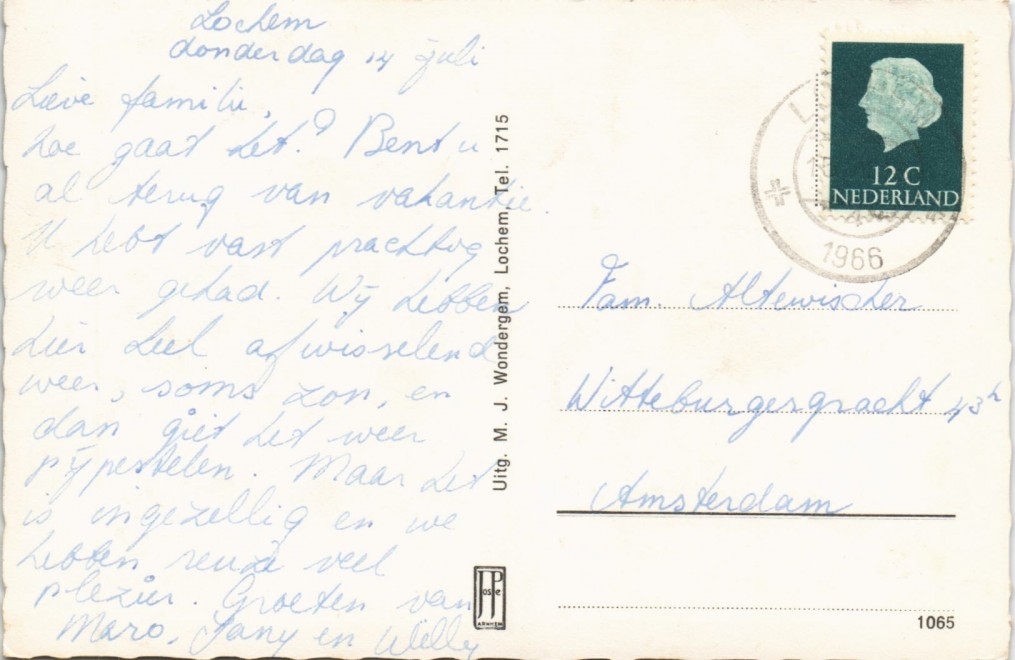 Lochem
donderdag 14 juli
Lieve familie,
hoe gaat het? Bent u
al terug van vakantie.
U hebt vast prachtig
weer gehad. Wij hebben
hier heel afwisselend
weer, soms zon, en
dan giet het weer
pijpestelen. Maar het
is ingezellig en we
hebben reuze veel
plezier. Groeten van
Maro, Jany en Willy
Uitg. M. J. Wondergem, Lochem, Tel. 1715
JosPe
ARNHEM
12 C
NEDERLAND
1966
Fam. Altewischer
Witteburgergracht 43h
Amsterdam
1065